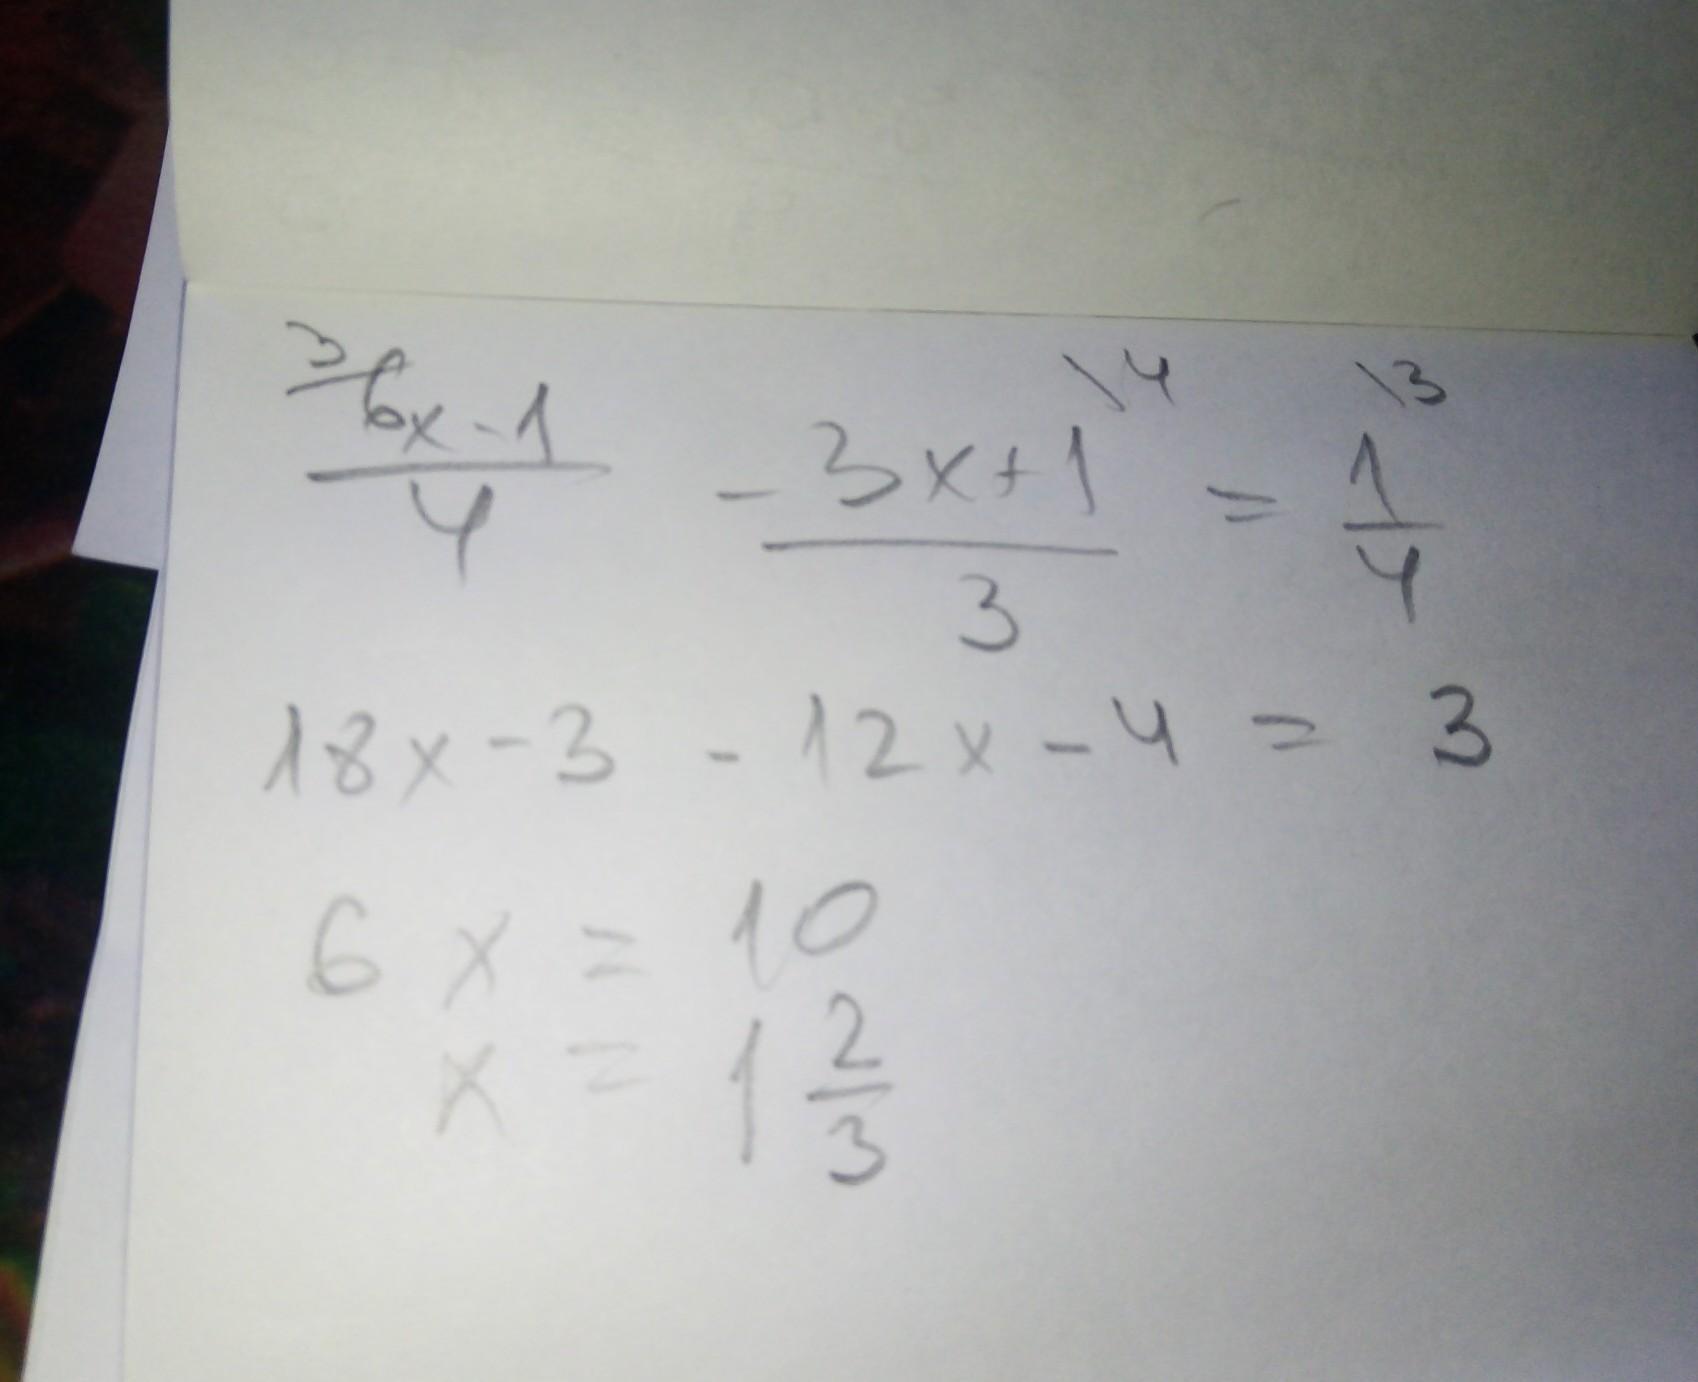 3/ 6x-1 / 4 - 3x+1 \4 / 3 = 1 \3 / 4
18x - 3 - 12x - 4 = 3
6x = 10
x = 1 2/3